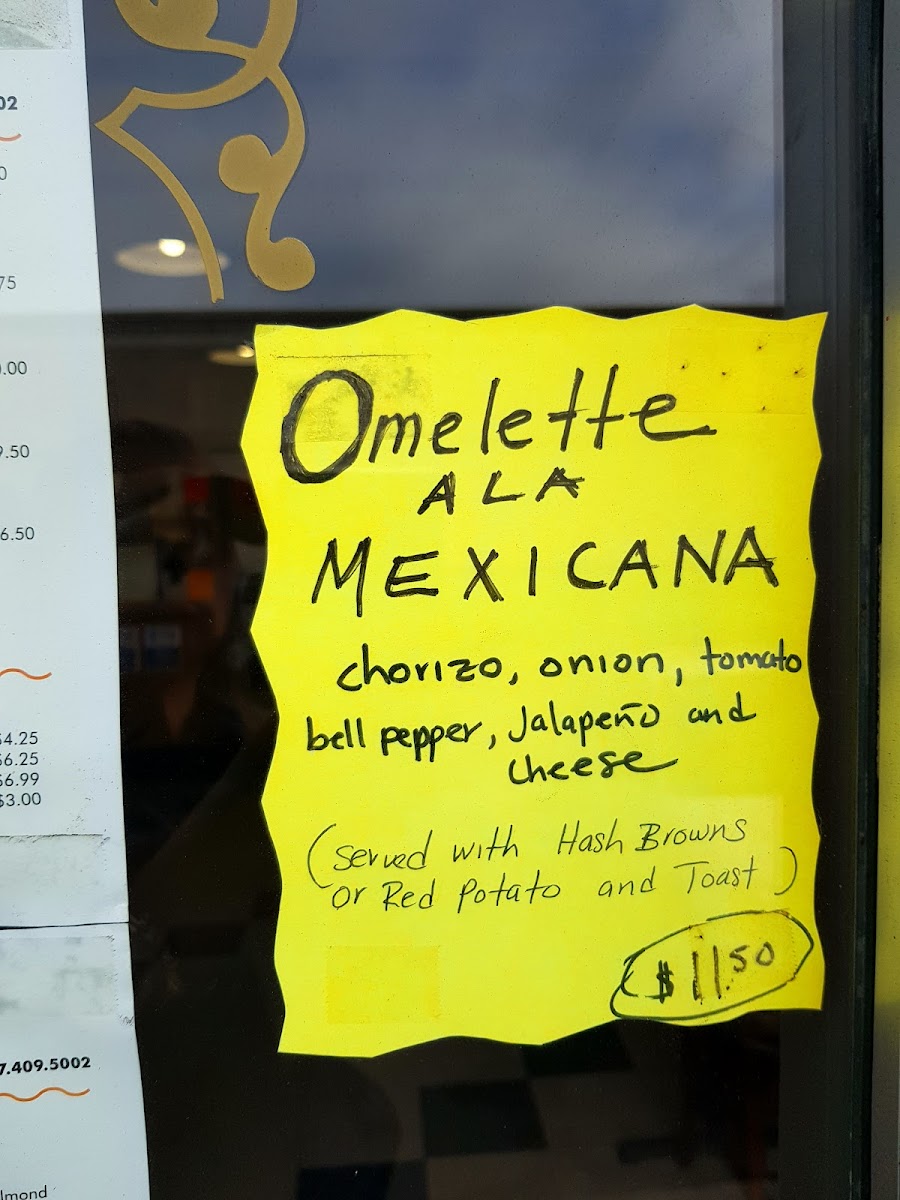 02
0
75
.00
9.50
6.50
$4.25
$6.25
$6.99
$3.00
7.409.5002
lmond
Omelette
A LA
MEXICANA
chorizo, onion, tomato
bell pepper, Jalapeño and
cheese
(served with Hash Browns
or Red Potato and Toast)
$11.50